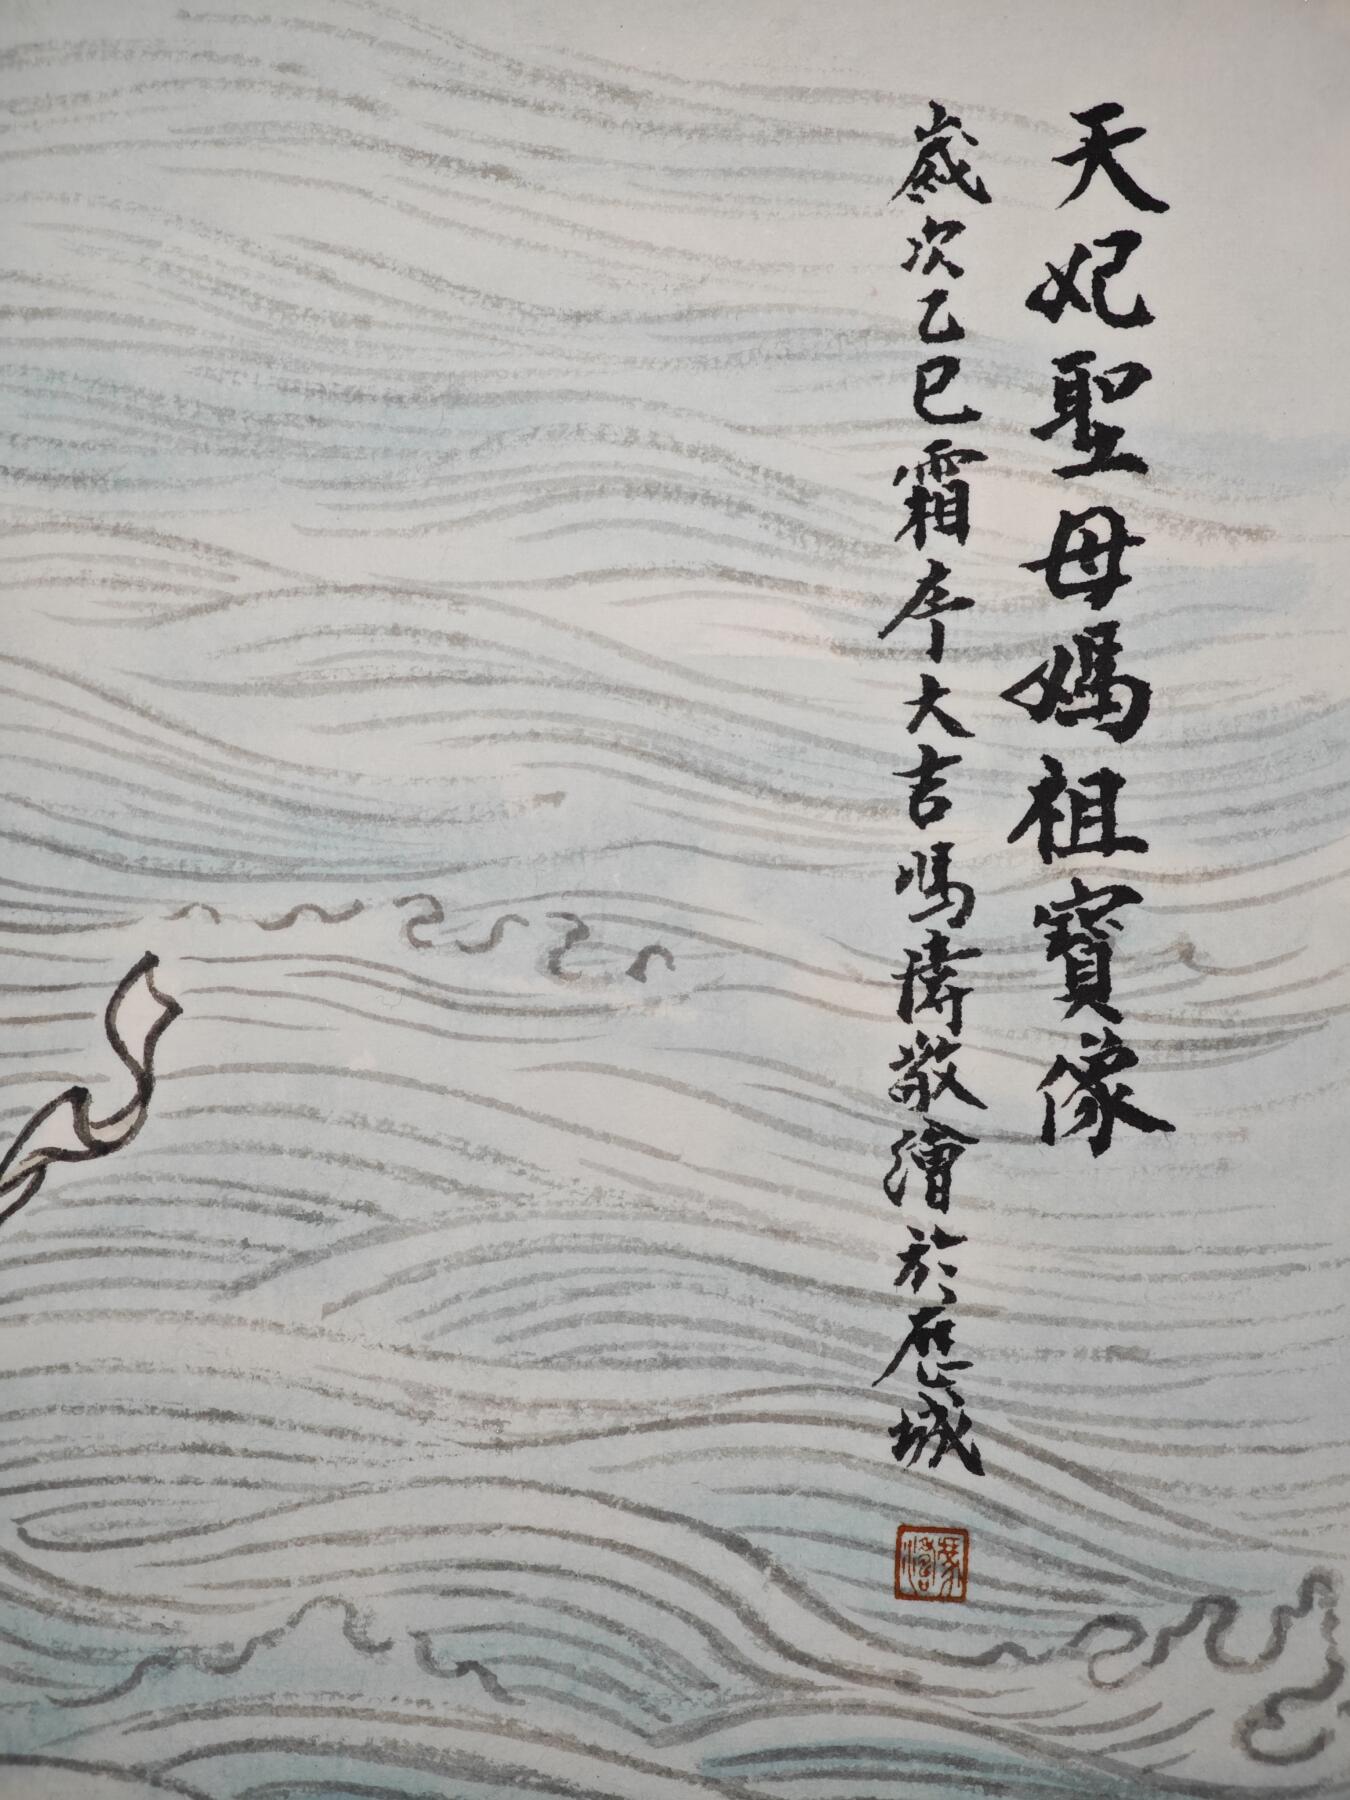 天妃聖母媽祖寶像
歲次乙巳霜序大吉鳴濤敬繪於歷城